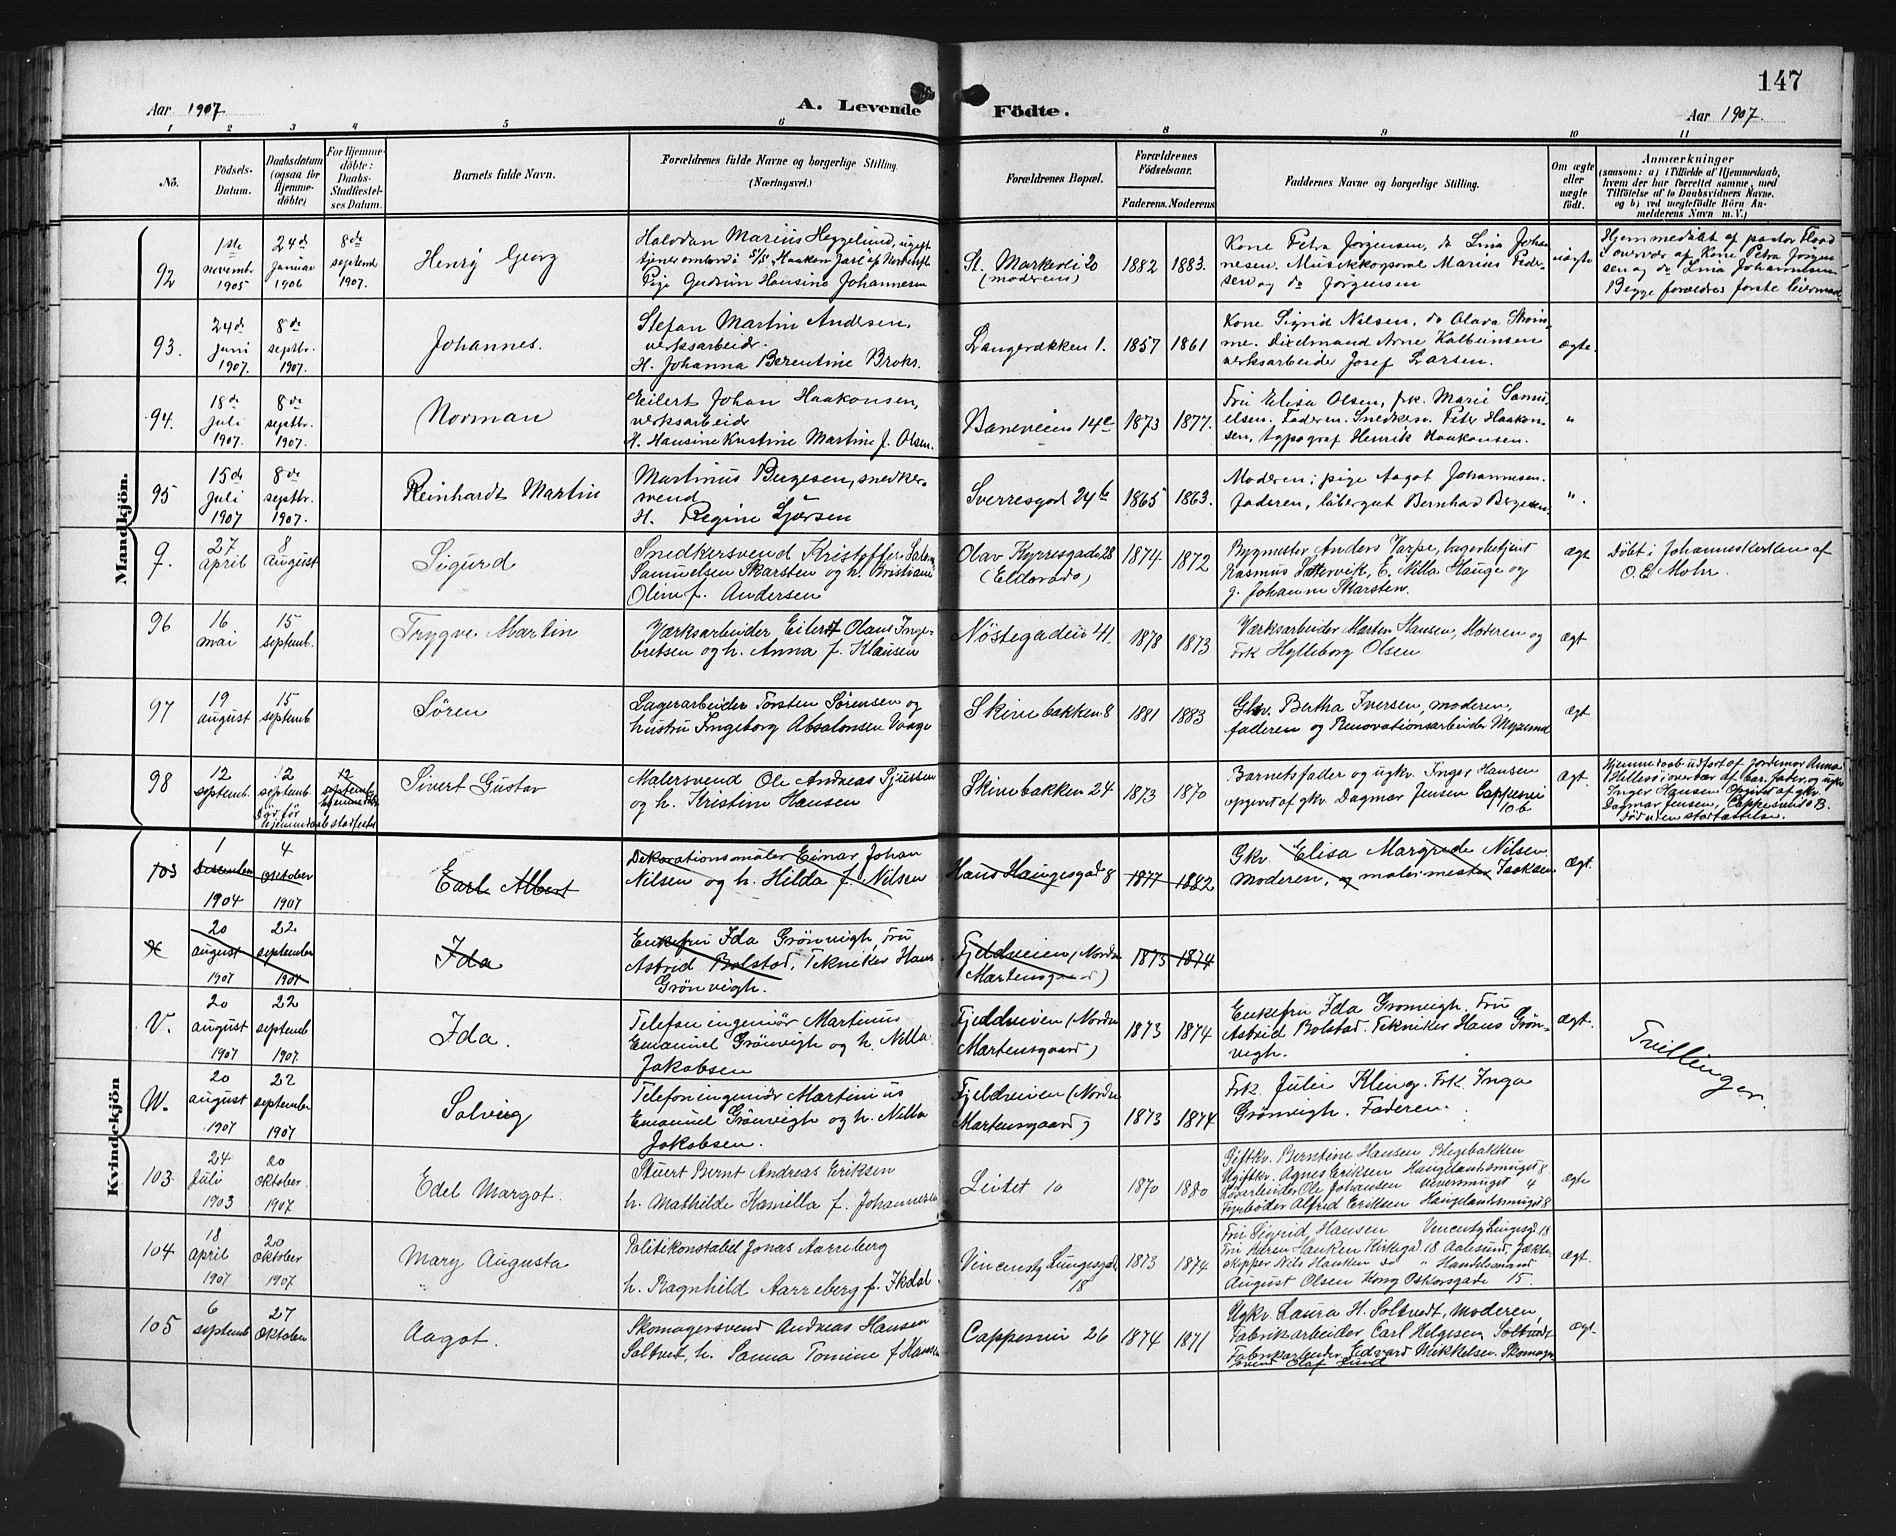 147
Aar 1907. A. Levende Födte. Aar 1907.
1 2 3 4 5 6 8 9 10 11
No.
Födsels-
Datum.
Daabsdatum
(ogsaa for
Hjemme-
döbte)
For Hjemme-
döbte:
Daabs-
Stadfæstel-
ses Datum.
Barnets fulde Navn.
Forældrenes fulde Navne og borgerlige Stilling.
(Næringsvei.)
Forældrenes Bopæl.
Forældrenes
Födselsaar.
Faderens. Moderens.
Faddernes Navne og borgerlige Stilling.
Om ægte
eller
uægte
födt.
Anmærkninger
(saasom: a) i Tilfælde af Hjemmedaab,
hvem der har forrettet samme, med
Tilföielse af to Daabsvidners Navne,
og b) ved uægtefödte Börn An-
melderens Navn m. V.)
Mandkjön.
92
1ste
novembr
1905
24de
Januar
1906
8de
septemb
1907.
Henry Georg
Halvdan Marius Heggelund, ugift
Pige Gudrun Hansine Johannesen
St. Markevei 20
(moderens)
1882 1883.
Kone Petra Jørgensen, do Lina Johan
nesen. Musikkorporal Marius Peder-
sen og do Jørgensen
uægte
Hjemmedöbt af pastor Flood
i overvær af Kone Petra Jørgen
sen og do Lina Johannesen
Begge forældres første leiermaal
93.
24de
juni
1907.
8de
septbr.
1907.
Johannes.
Stefan Martin Andesen,
verksarbeidr.
H. Johanna Berentine Broks.
Langerækken 1.
1857 1861
Kone Sigrid Nilsen, do Olava Strøm-
me. Arne Kalbeinsen
verksarbeide Josef Larsen.
ægte.
94.
18de
Juli
1907.
8de
septbr.
1907.
Norman
Eilert Johan Haakonsen,
verksarbeidr
H. Hansine Kristine Martine f. Olsen.
Baneveien 14c
1873 1877.
Fru Elisa Olsen, frk. Marie Samu-
elsen. Faderen. Snedkersv. Peter Haakon-
sen, typograf Henrik Haakonsen.
"
95
15de
Juli
1907
8de
septbr.
1907.
Reinhardt Martin
Martinus Bergesen, snedker-
svend
H. Regine
Sverresgad 24b
1865 1863.
Moderen; pige Aagot Johannesen.
Faderen, løbergut Bernhard Bergesen.
"
q.
27
april
8
August
Sigurd
Snedkersvend Kristoffer
Samuelsen Skarsten og h. Kristiane
Oline f. Andersen
Olav Kyrresgade 28
(Eldorado)
1874 1872
Bygmester Anders Varpe, lagerbetjent
Rasmus Sættervik, E. Nilla Hauge og
g. Johanne Skarsten.
ægt
Döbt i Johanneskirken af
O. E. Mohr.
96
16
mai
15
septemb.
Trygve Martin
Værksarbeider Eilert Olaus Inge-
bretsen og h. Anna f. Klausen
Nöstegaden 41.
1878 1873
Værksarbeider Marten Hansen, Moderen og
Frk Hylleborg Olsen
ægt
97
19
august
15
septemb
Sören
Lagerarbeider Torsten Sörensen og
hustru Ingeborg Absalonsen Vaage
Skivebakken 8
1881 1883
Gkv. Bertha Iversen, moderen,
faderen og Renovationsarbeider
ægt
98
12
septemb.
12
septemb
12
septemb
Sivert Gustav
Malersvend Ole Andreas Sjursen
og h. Kristine Hansen
Skivebakken 24
1873 1870
Barnetsfader og ugkv. Inger Hansen
opgivet af gkv. Dagmar Jensen Cappesvei
10b
ægt.
Hjemmedaab udfört af jordemor Anna
Hillesö i overvær af bar. fader, og ugkv
Inger Hansen Opgivet af gkv.
Dagmar Jensen, Cappesvei 10 B.
Död uden stadfæstelse.
Kvindekjön
103
1
December
1904
4
Oktober
1907
Earl Albert
Dekorationsmaler Einar Johan
Nilsen og h. Hilda f. Nilsen
Hans Haugesgad 8
1877 1882
Gkv. Elisa Margrede Nilsen
moderen, og malermester Isaksen
Ægt.
20
august
1907
22
september
1907
Ida
Enkefru Ida Grönvigh, Fru
Astrid Bolstad. Tekniker Hans
Grönvigh.
Fjeldveien (Nordre
Martensgaard)
1873 1874
V.
20
august
1907
22
septemb
1907
Ida.
Telefoningeniör Martinus
Emanuel Grönvigh og h. Nilla
Jakobsen
Fjeldveien (Nordre
Martensgaard)
1873 1874
Enkefru Ida Grönvigh. Fru
Astrid Bolstad. Tekniker Hans Grön-
vigh.
Ægt.
Tvillinger.
W.
20
august
1907
22
september
1907
Solveig
Telefoningeniör Martinus
Emanuel Grönvigh og h. Nilla
Jakobsen.
Fjeldveien (Nordre
Martensgaard)
1873 1874
Frk. Julie Kling. Frk. Inga
Grönvigh. Faderen.
103.
24
Juli
1903
20
Oktober.
1907
Edel Margot.
Stuert Bernt Andreas Eriksen
h. Mathilde Kamilla f. Johannesen
Leitet 10
1870 1880
Giftkv. Berntine Hansen Blegebakken
Ugiftkv. Agnes Eriksen Haugelandsmuget 8
Ole Johansen Veversmuget 4
Alfred Eriksen Haugelandsmuget 8
ægte
104
18
April
1907
20
Oktober
1907
Mary Augusta
Politikonstabel Jonas Aarreberg
h. Ragnhild Aarreberg f. Ikdal
Vincenty Lungesgad
18
1873 1874
Fru Sigrid Hansen Vincenty Lungesgd 18
Fru Karen Hanken Kirkegd 18 Aalesund. Jækte
skipper Nils Hanken do " Handelsmand
August Olsen Kong Oskarsgade 15.
ægt.
105
6
septemb
27
Oktober
Aagot.
Skomagersvend Andreas Hansen
Soltvet, h. Sanna Tomine f Hansen
Cappesvei 26
1874 1871
Ugkv. Laura H. Soltvedt, Moderen,
Fabrikarbeider Carl Helgesen Soltvedt
Fabrikarbeider Edvard Mikkelsen. Skomager
svend Olaf Lund
ægt.